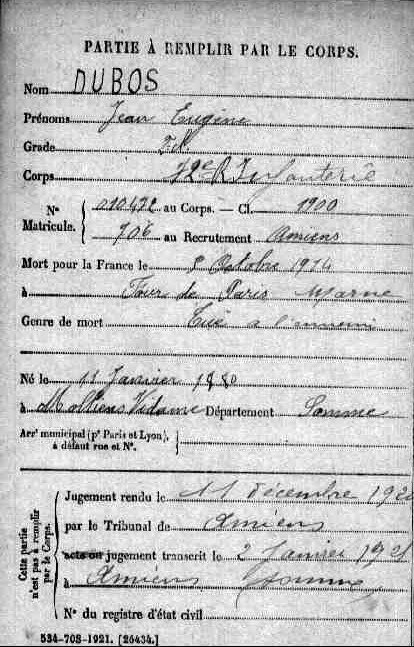 PARTIE À REMPLIR PAR LE CORPS.
Nom DUBOS
Prénoms Jean Eugène
Grade
Corps 72e R Infanterie
N° Matricule. { 010472 au Corps. — Cl. 1900
706 au Recrutement Amiens
Mort pour la France le 8 Octobre 1914
à Four de Paris Marne
Genre de mort Tué à l'ennemi
Né le 11 Janvier 1880
à Molliens Vidame Département Somme
Arr' municipal (p' Paris et Lyon), à défaut rue et N°.
Cette partie n'est pas à remplir par le Corps.
Jugement rendu le 11 décembre 1920
par le Tribunal de Amiens
acte ou jugement transcrit le 2 Janvier 1921
à Amiens Somme
N° du registre d'état civil
534-708-1921. [26434.]